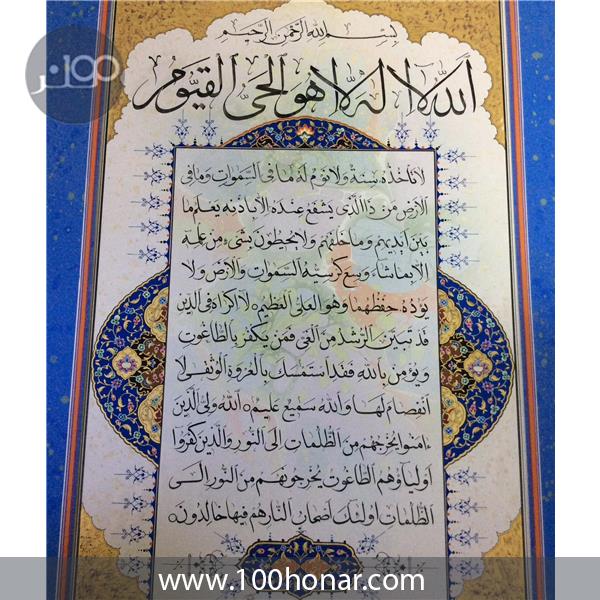 100هنر
بسم الله الرحمن الرحيم
اَللّٰهُ لَا اِلٰهَ اِلَّا هُوَ الْحَیُّ الْقَیُّومُ
لَا تَأْخُذُهُ سِنَةٌ وَلَا نَوْمٌ لَهُ مَا فِی السَّمٰوَاتِ وَمَا فِی
الْاَرْضِ مَنْ ذَا الَّذِی یَشْفَعُ عِنْدَهُ اِلَّا بِاِذْنِهِ یَعْلَمُ مَا
بَیْنَ اَیْدِیهِمْ وَمَا خَلْفَهُمْ وَلَا یُحِیطُونَ بِشَیْءٍ مِنْ عِلْمِهِ
اِلَّا بِمَا شَاءَ وَسِعَ كُرْسِیُّهُ السَّمٰوَاتِ وَالْاَرْضَ وَلَا
یَؤُدُهُ حِفْظُهُمَا وَهُوَ الْعَلِیُّ الْعَظِیمُ ه لَا اِكْرَاهَ فِی الدِّینِ
قَدْ تَبَیَّنَ الرُّشْدُ مِنَ الْغَیِّ فَمَنْ یَكْفُرْ بِالطَّاغُوتِ
وَیُؤْمِنْ بِاللّٰهِ فَقَدِ اسْتَمْسَكَ بِالْعُرْوَةِ الْوُثْقٰی لَا
انْفِصَامَ لَهَا وَاللّٰهُ سَمِیعٌ عَلِیمٌ ه اَللّٰهُ وَلِیُّ الَّذِینَ
اٰمَنُوا یُخْرِجُهُمْ مِنَ الظُّلُمَاتِ اِلَی النُّورِ وَالَّذِینَ كَفَرُوا
اَوْلِیَاؤُهُمُ الطَّاغُوتُ یُخْرِجُونَهُمْ مِنَ النُّورِ اِلَی
الظُّلُمَاتِ اُولٰئِكَ اَصْحَابُ النَّارِ هُمْ فِیهَا خَالِدُونَ ه
www.100honar.com